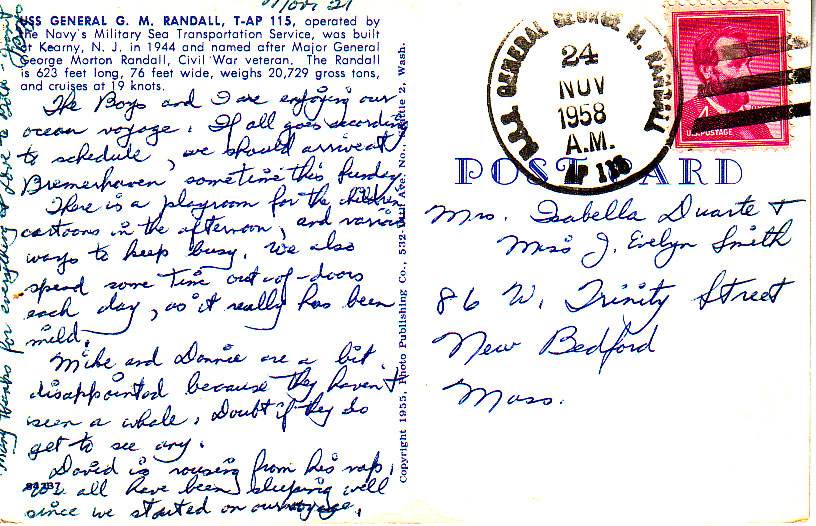 Nov 21
USS GENERAL G. M. RANDALL, T-AP 115, operated by
the Navy's Military Sea Transportation Service, was built
at Kearny, N. J. in 1944 and named after Major General
George Morton Randall, Civil War veteran. The Randall
is 623 feet long, 76 feet wide, weighs 20,729 gross tons,
and cruises at 19 knots.
The Boys and I are enjoying our
ocean voyage. If all goes according
to schedule, we should arrive at
Bremerhaven sometime this Sunday.
There is a playroom for the children
cartoons in the afternoon, and various
ways to keep busy. We also
spend some time out-of-doors
each day, as it really has been
mild.
Mike and Donnie are a bit
disappointed because they haven't
seen a whale. Doubt if they do
get to see any.
David is rousing from his nap.
We all have been sleeping well
since we started on our voyage.
Many thanks for everything & love to
Copyright 1955, Photo Publishing Co., 532- Ave. No., Seattle 2, Wash.
U.S.S. GENERAL GEORGE M. RANDALL
24
NOV
1958
A.M.
AP 115
4
U.S. POSTAGE
POST CARD
Mrs. Isabella Duarte +
Miss J. Evelyn Smith
86 W. Trinity Street
New Bedford
Mass.